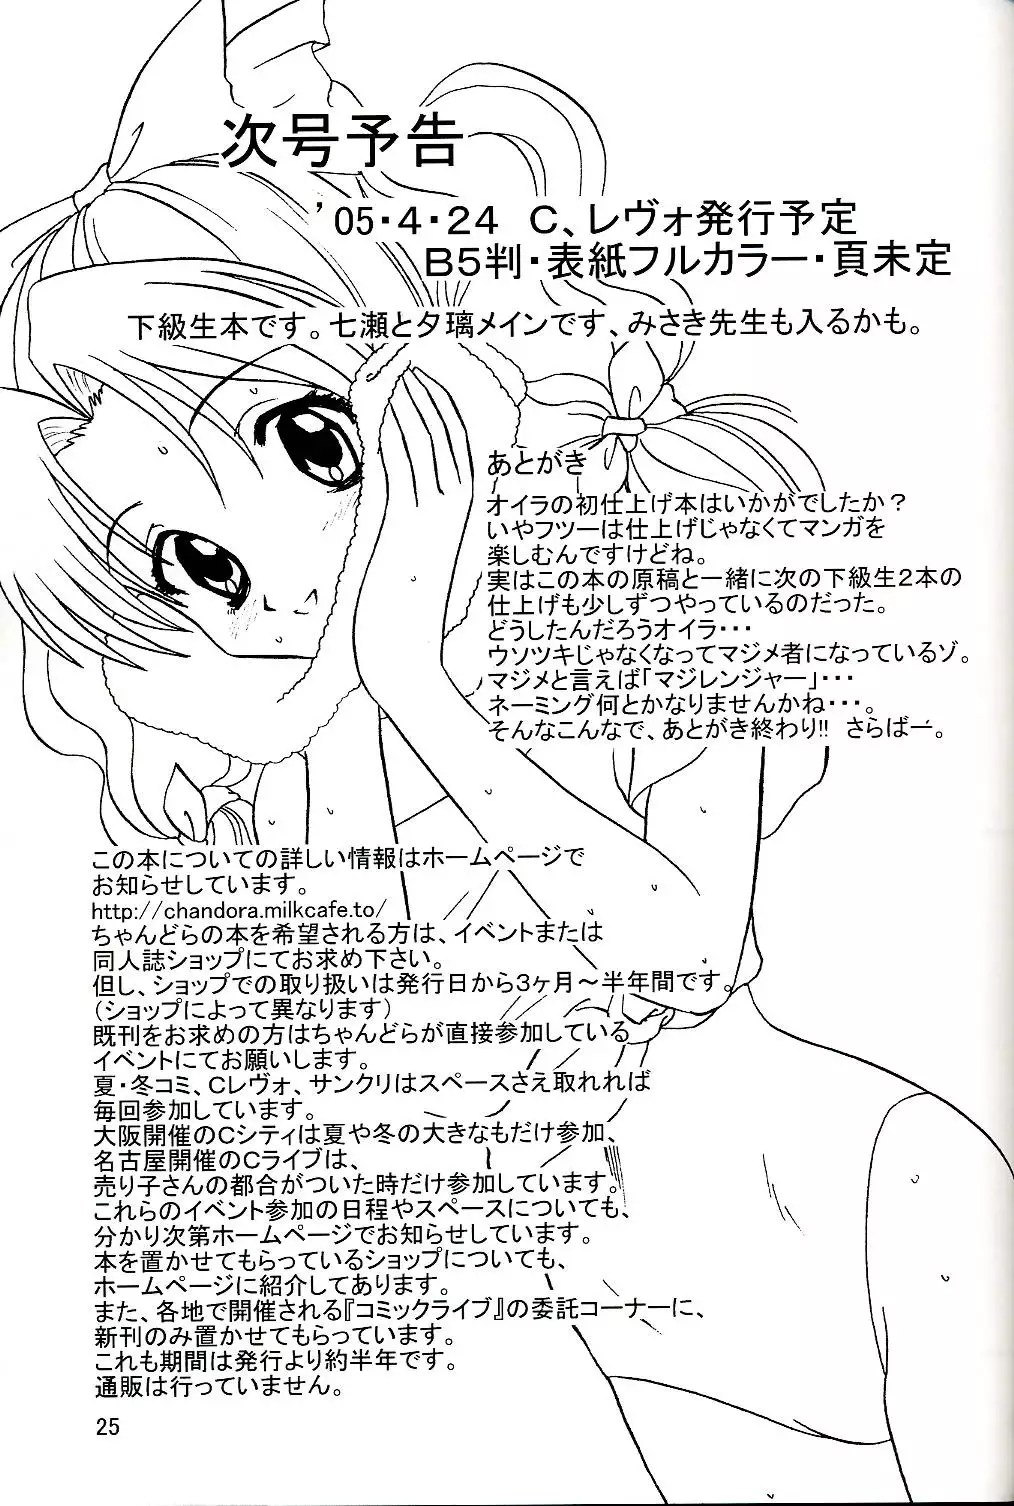 次号予告
'05・4・24　C、レヴォ発行予定
B5判・表紙フルカラー・頁未定
下級生本です。七瀬と夕璃メインです、みさき先生も入るかも。
あとがき
オイラの初仕上げ本はいかがでしたか？
いやフツーは仕上げじゃなくてマンガを
楽しむんですけどね。
実はこの本の原稿と一緒に次の下級生２本の
仕上げも少しずつやっているのだった。
どうしたんだろうオイラ・・・
ウソツキじゃなくなってマジメ者になっているゾ。
マジメと言えば「マジレンジャー」・・・
ネーミング何とかなりませんかね・・・。
そんなこんなで、あとがき終わり!!　さらばー。
この本についての詳しい情報はホームページで
お知らせしています。
http://chandora.milkcafe.to/
ちゃんどらの本を希望される方は、イベントまたは
同人誌ショップにてお求め下さい。
但し、ショップでの取り扱いは発行日から3ヶ月～半年間です。
（ショップによって異なります）
既刊をお求めの方はちゃんどらが直接参加している
イベントにてお願いします。
夏・冬コミ、Cレヴォ、サンクリはスペースさえ取れれば
毎回参加しています。
大阪開催のCシティは夏や冬の大きなもだけ参加、
名古屋開催のCライブは、
売り子さんの都合がついた時だけ参加しています。
これらのイベント参加の日程やスペースについても、
分かり次第ホームページでお知らせしています。
本を置かせてもらっているショップについても、
ホームページに紹介してあります。
また、各地で開催される『コミックライブ』の委託コーナーに、
新刊のみ置かせてもらっています。
これも期間は発行より約半年です。
通販は行っていません。
25